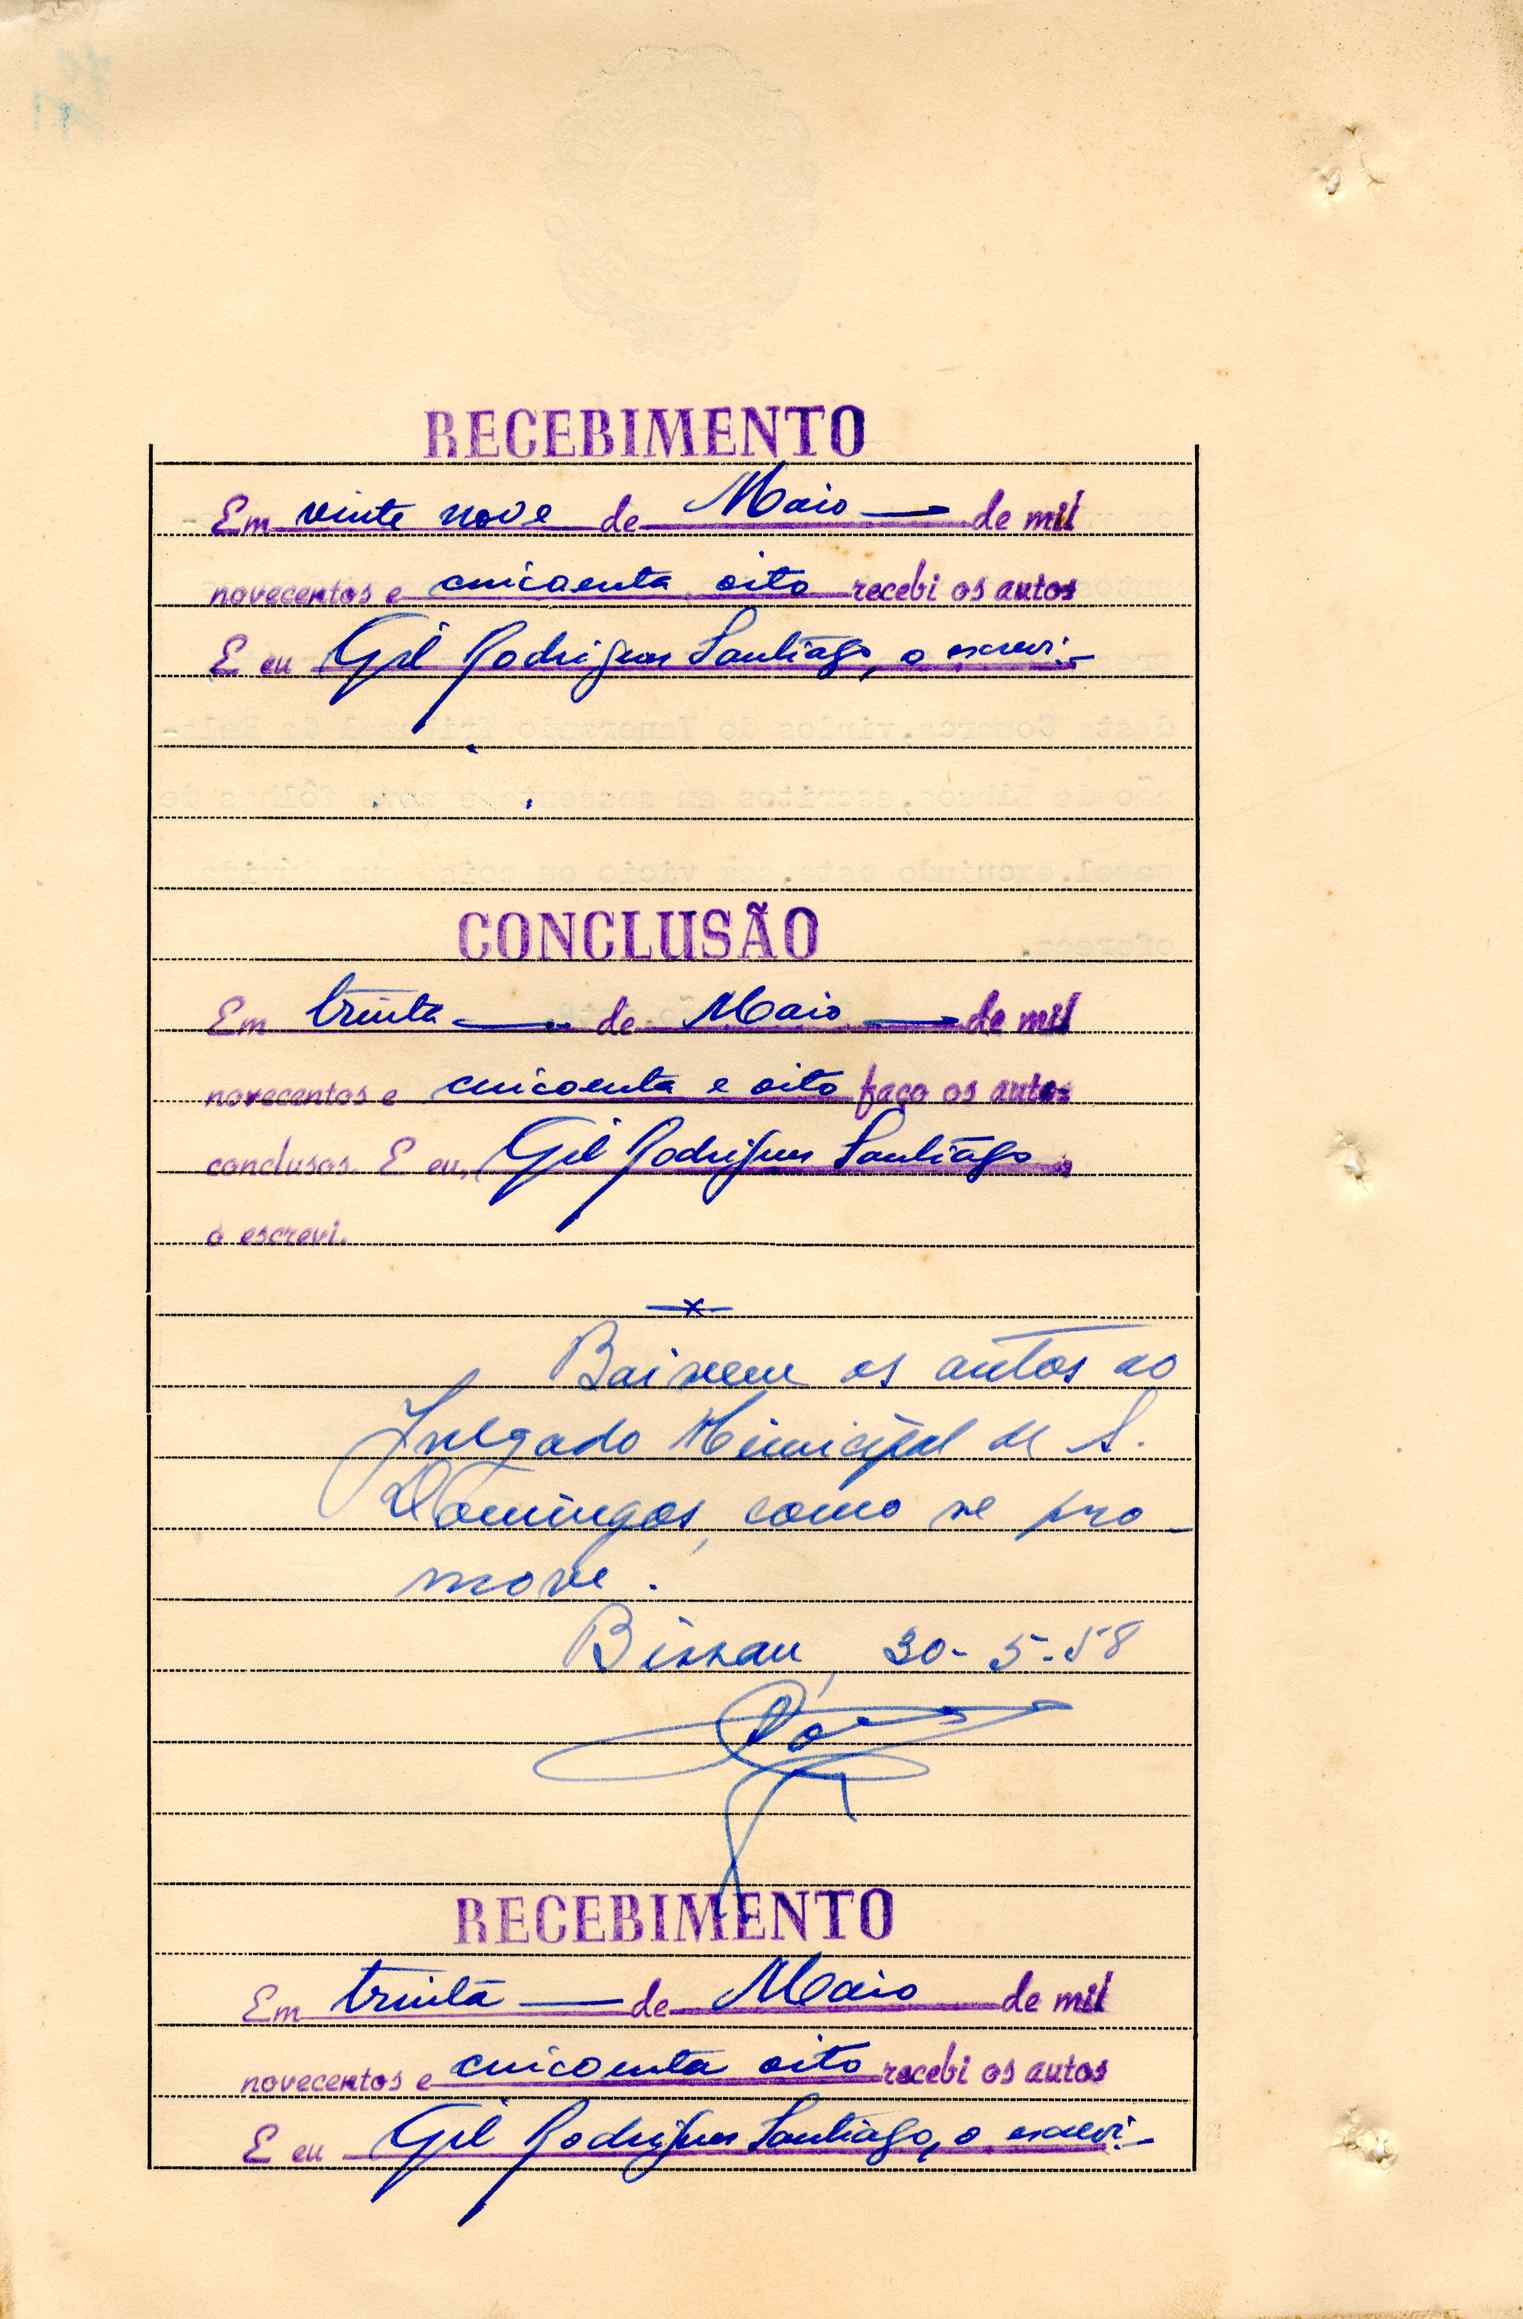 RECEBIMENTO
Em vinte nove de Maio de mil
novecentos e cincoenta oito recebi os autos
E eu Gil Rodrigues Santiago, o escrevi.-
CONCLUSÃO
Em trinta de Maio de mil
novecentos e cincoenta e oito faço os autos
conclusos. E eu, Gil Rodrigues Santiago
o escrevi.
Baixem os autos ao
Julgado Municipal de S.
Domingos, como se pro-
move.
Bissau, 30-5-58
RECEBIMENTO
Em trinta de Maio de mil
novecentos e cincoenta oito recebi os autos
E eu Gil Rodrigues Santiago, o escrevi.-